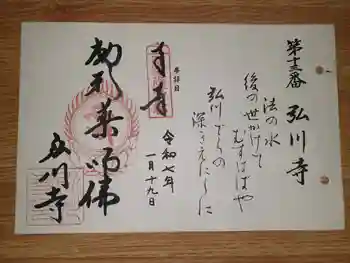 第十三番 弘川寺
法の水
後の世かけて
むすばばや
弘川でらの
深きえにしに
奉拝日
令和七年
一月十九日
薬師佛
弘川寺